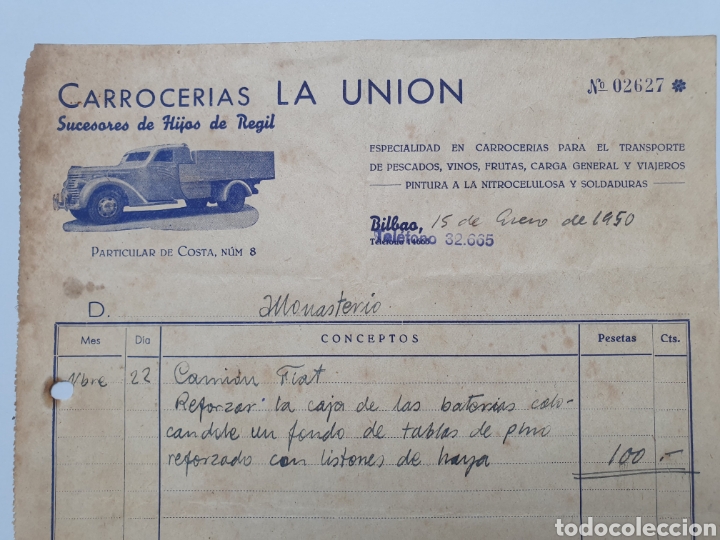 CARROCERIAS LA UNION
Nº 02627
Sucesores de Hijos de Regil
ESPECIALIDAD EN CARROCERIAS PARA EL TRANSPORTE
DE PESCADOS, VINOS, FRUTAS, CARGA GENERAL Y VIAJEROS
PINTURA A LA NITROCELULOSA Y SOLDADURAS
Bilbao, 15 de Enero de 1950
Teléfono 32.665
PARTICULAR DE COSTA, NÚM 8
D. Monasterio
Mes Dia CONCEPTOS Pesetas Cts.
Nbre 22 Camión Fiat.
Reforzar la caja de las baterias colo-
candole un fondo de tablas de pino
reforzado con listones de haya 100 -
todocoleccion